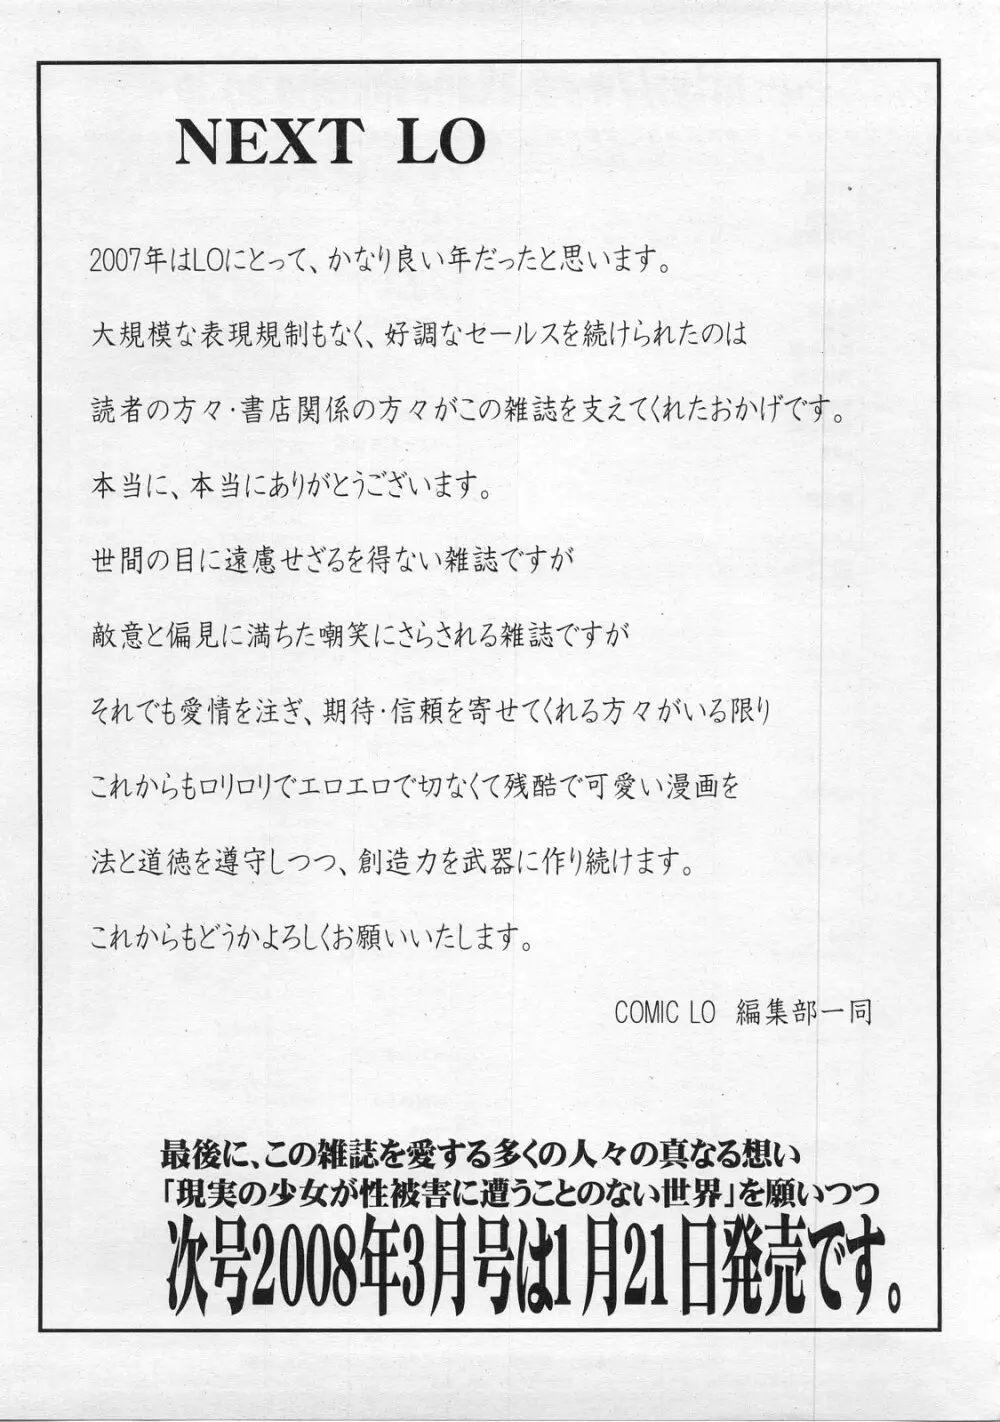 NEXT LO
2007年はLOにとって、かなり良い年だったと思います。
大規模な表現規制もなく、好調なセールスを続けられたのは
読者の方々・書店関係の方々がこの雑誌を支えてくれたおかげです。
本当に、本当にありがとうございます。
世間の目に遠慮せざるを得ない雑誌ですが
敵意と偏見に満ちた嘲笑にさらされる雑誌ですが
それでも愛情を注ぎ、期待・信頼を寄せてくれる方々がいる限り
これからもロリロリでエロエロで切なくて残酷で可愛い漫画を
法と道徳を遵守しつつ、創造力を武器に作り続けます。
これからもどうかよろしくお願いいたします。
COMIC LO 編集部一同
最後に、この雑誌を愛する多くの人々の真なる想い
「現実の少女が性被害に遭うことのない世界」を願いつつ
次号2008年3月号は1月21日発売です。